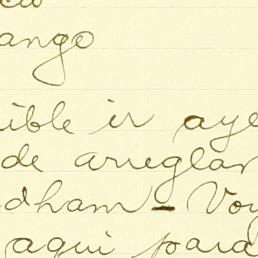 ango
ible ir aye
de arreglar
dham - Voy
aqui para